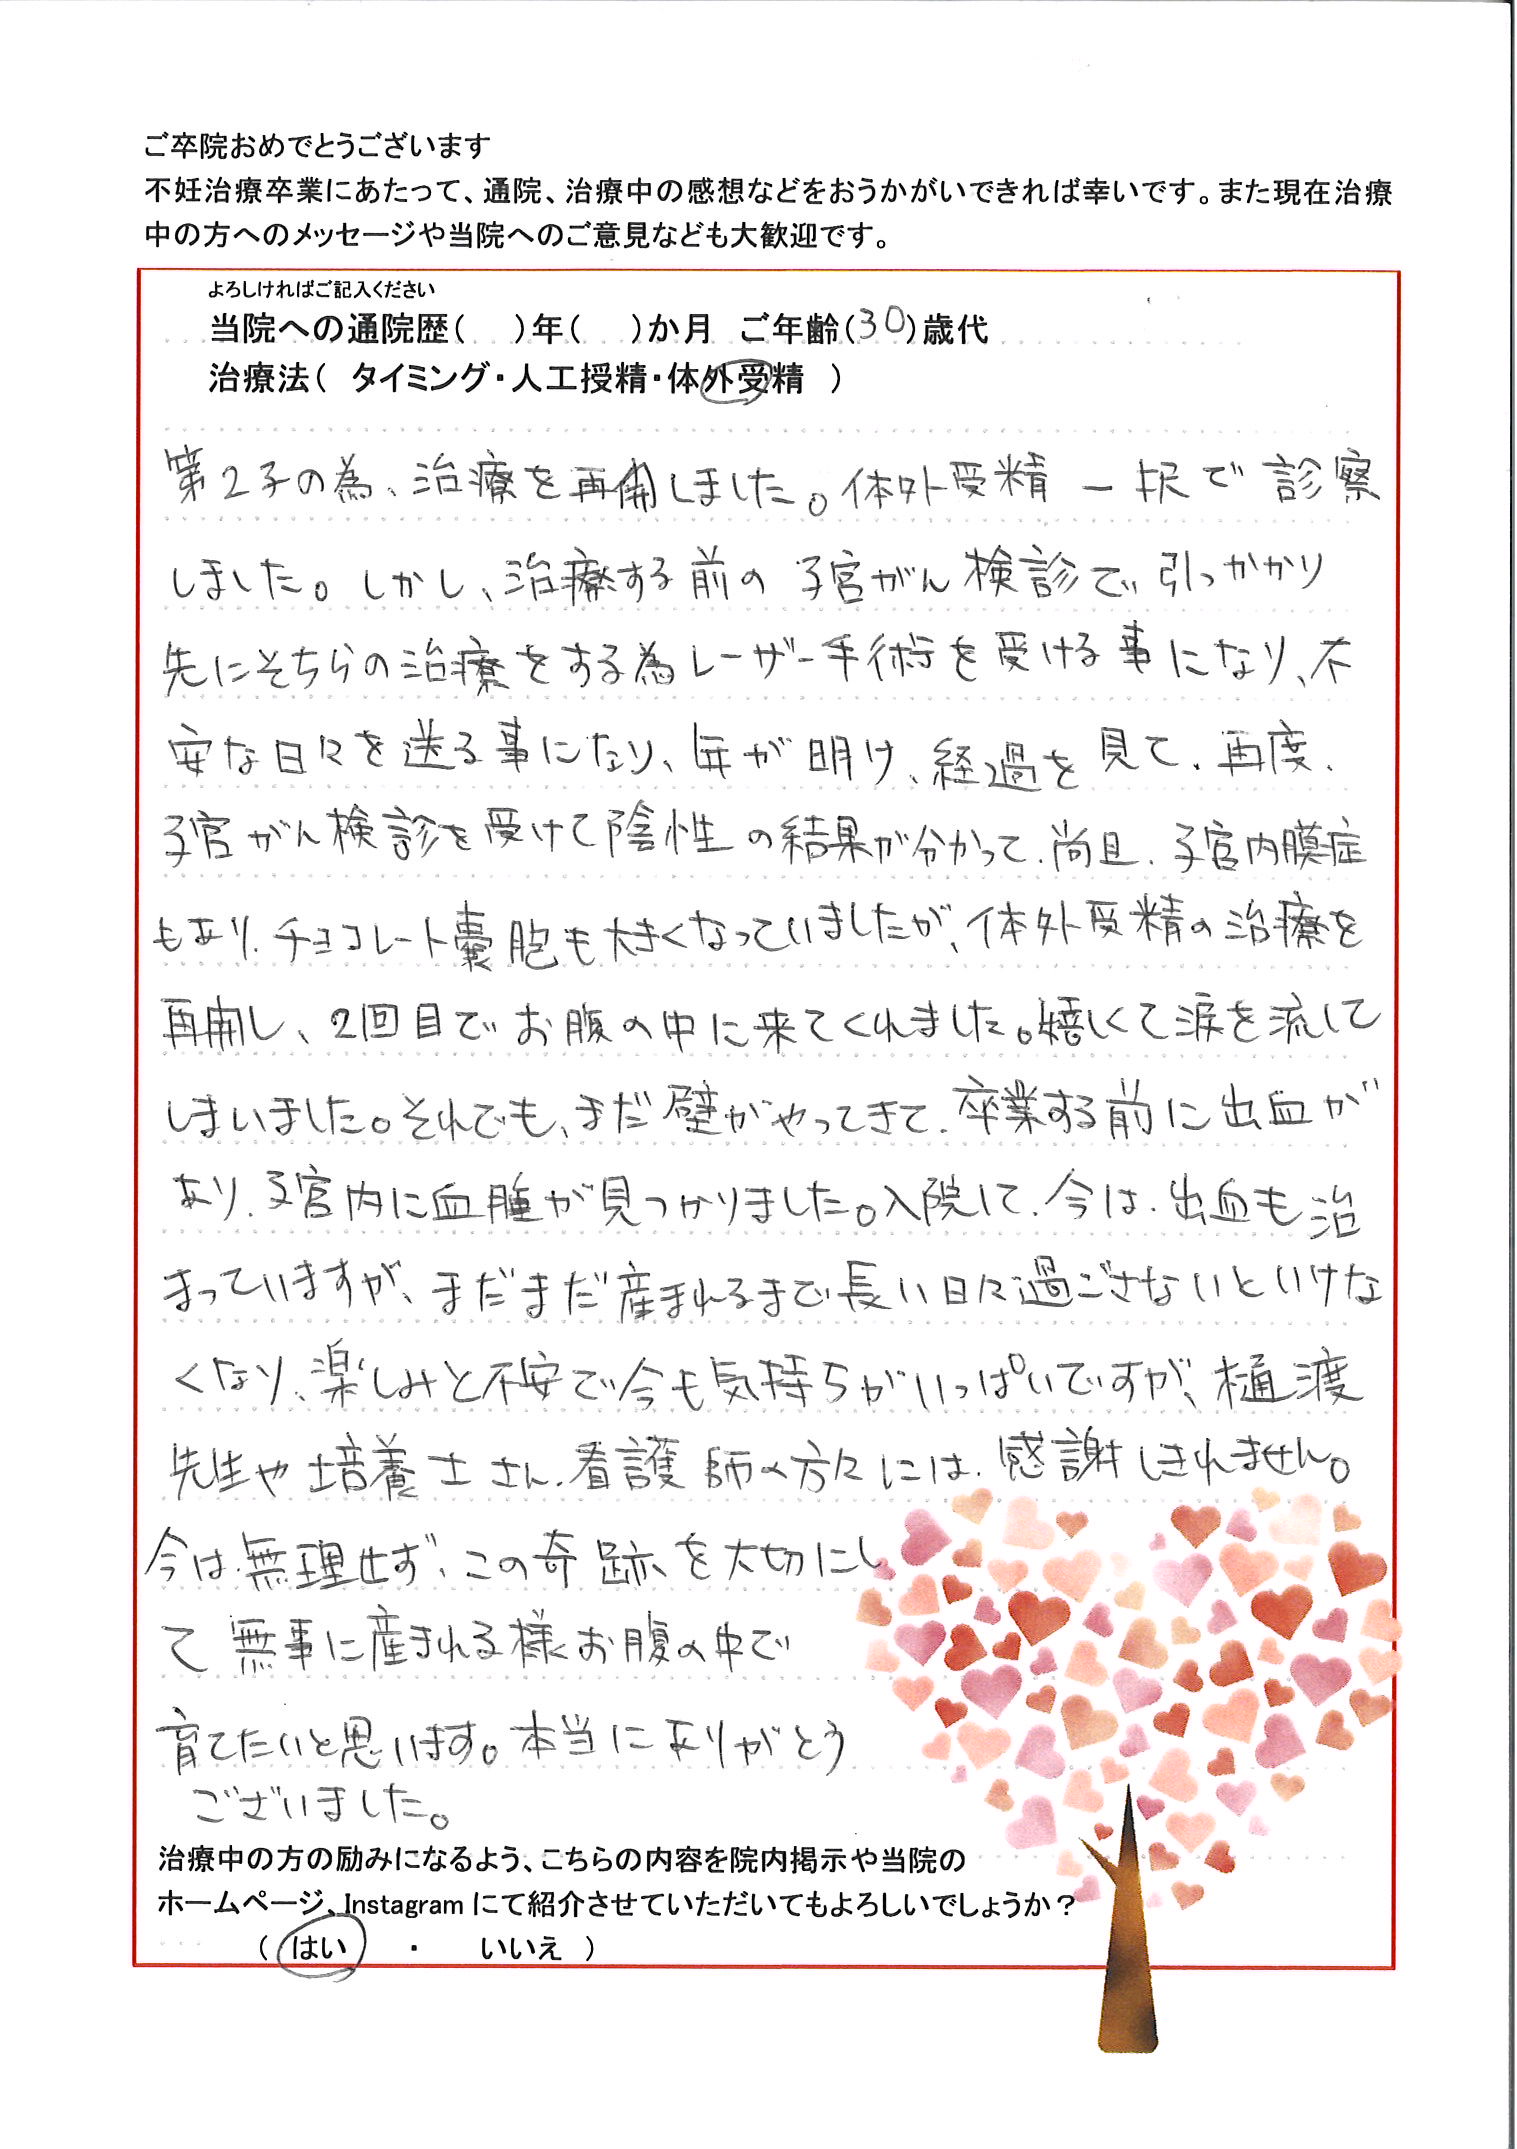 ご卒院おめでとうございます
不妊治療卒業にあたって、通院、治療中の感想などをおうかがいできれば幸いです。また現在治療
中の方へのメッセージや当院へのご意見なども大歓迎です。
よろしければご記入ください
当院への通院歴(　)年(　)か月　ご年齢(30)歳代
治療法(　タイミング・人工授精・体外受精　)
第2子の為、治療を再開しました。体外受精一択で診察
しました。しかし、治療する前の子宮がん検診で引っかかり
先にそちらの治療をする為レーザー手術を受ける事になり、不
安な日々を送る事になり、年が明け、経過を見て、再度、
子宮がん検診を受けて陰性の結果が分かって、尚且、子宮内膜症
もあり、チョコレート嚢胞も大きくなっていましたが、体外受精の治療を
再開し、2回目でお腹の中に来てくれました。嬉しくて涙を流して
しまいました。それでも、まだ壁がやってきて、卒業する前に出血が
あり、子宮内に血腫が見つかりました。入院して、今は、出血も治
まっていますが、まだまだ産まれるまで長い日々過ごさないといけな
くなり、楽しみと不安で今も気持ちがいっぱいですが、樋渡
先生や培養士さん、看護師の方々には、感謝しきれません。
今は、無理せず、この奇跡を大切にし
て無事に産まれる様にお腹の中で
育てたいと思います。本当にありがとう
ございました。
治療中の方の励みになるよう、こちらの内容を院内掲示や当院の
ホームページ、Instagramにて紹介させていただいてもよろしいでしょうか？
(　はい　・　いいえ　)